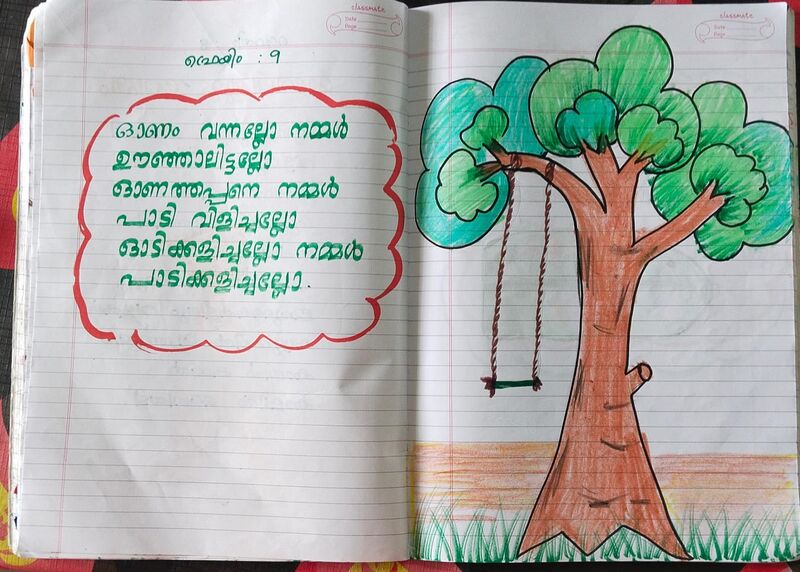 classmate
Date
Page
ഫ്രെയിം : 9
ഓണം വന്നല്ലോ നമ്മൾ
ഊഞ്ഞാലിട്ടല്ലോ
ഓണത്തപ്പനെ നമ്മൾ
പാടി വിളിച്ചല്ലോ
ഓടിക്കളിച്ചല്ലോ നമ്മൾ
പാടിക്കളിച്ചല്ലോ.
classmate
Date
Page